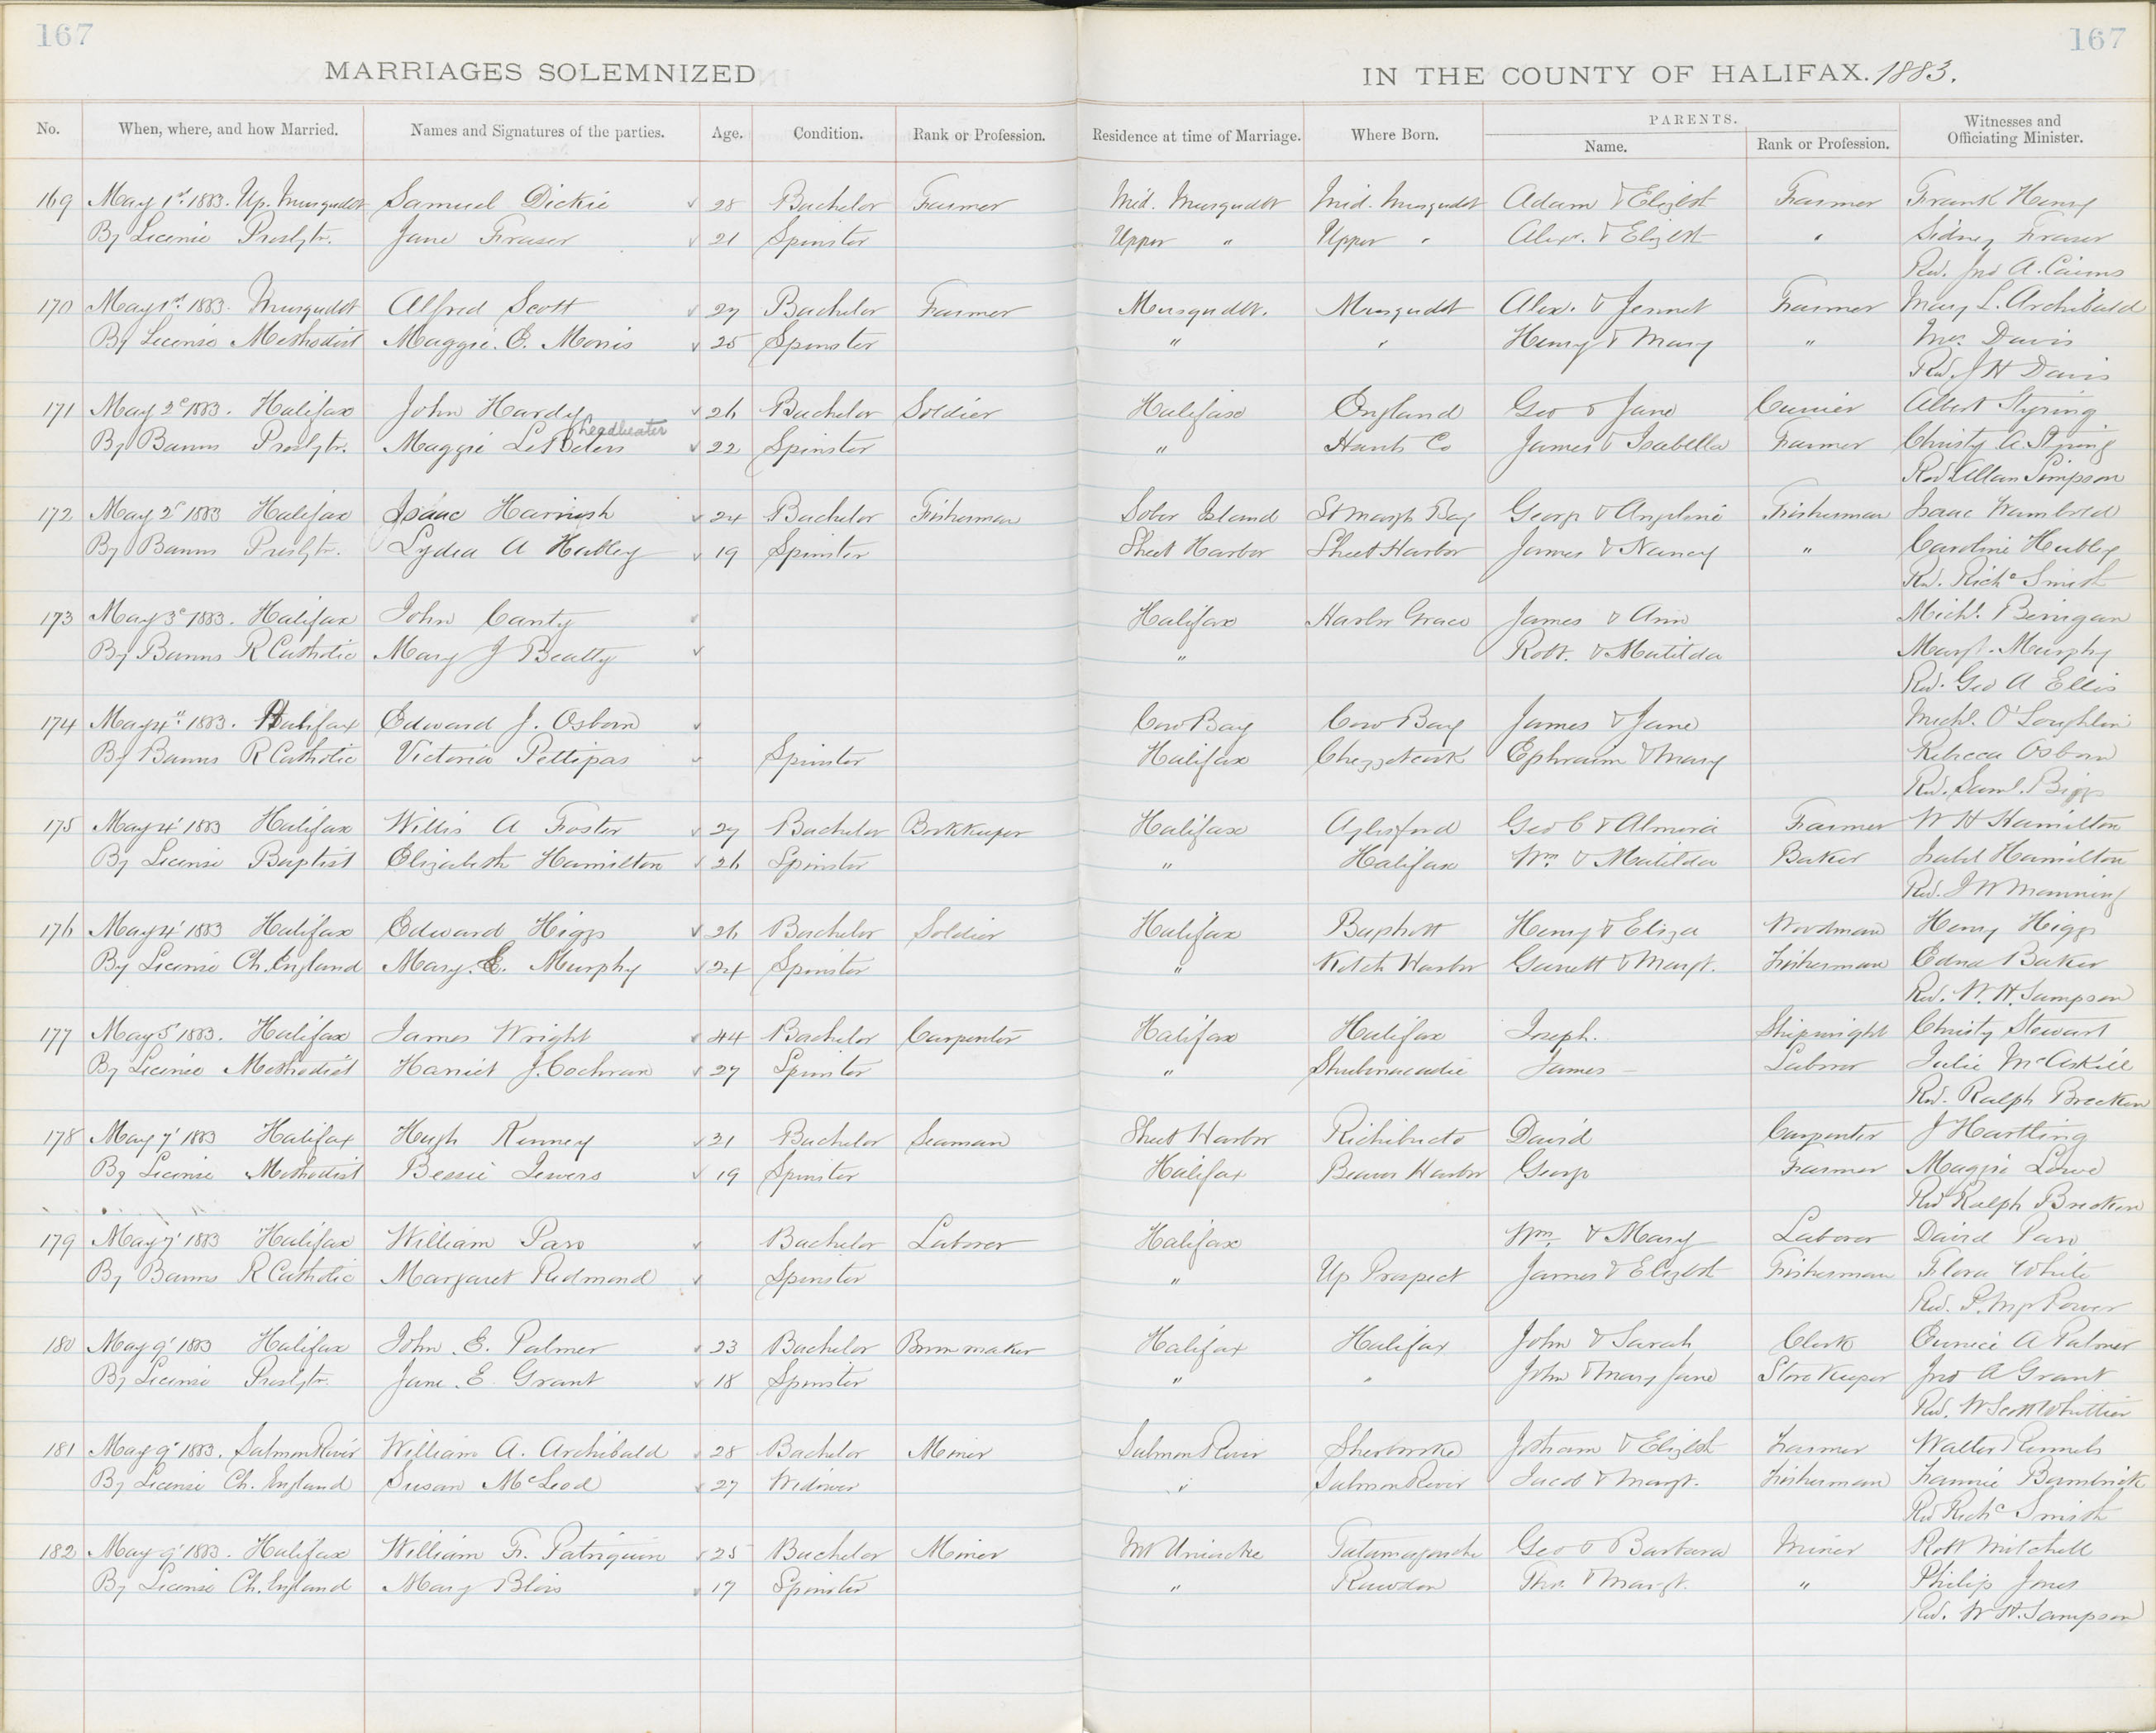 167 167
MARRIAGES SOLEMNIZED IN THE COUNTY OF HALIFAX. 1883.
No. When, where, and how Married. Names and Signatures of the parties. Age. Condition. Rank or Profession. Residence at time of Marriage. Where Born. PARENTS. Name. Rank or Profession. Witnesses and Officiating Minister.
169 May 1st 1883. Up. Musqudbt Samuel Dickie 28 Bachelor Farmer Mid. Musqudbt Mid. Musqudbt Adam & Elizbt Farmer Frank Henry
By License Presbytr. Jane Fraser 21 Spinster Upper " Upper " Alexr. & Elizbt " Sidney Fraser
Rev. Jno A. Cairns
170 May 1st 1883. Musqudbt Alfred Scott 27 Bachelor Farmer Musqudbt. Musqudbt Alex. & Jennet Farmer Mary L. Archibald
By License Methodist Maggie E. Morris 25 Spinster " " Henry & Mary " Mrs. Davis
Rev. J H Davis
171 May 2d 1883. Halifax John Hardy 26 Bachelor Soldier Halifax England Geo & Jane Currier Albert Styring
By Banns Presbytr. Maggie 22 Spinster " Hants Co James & Isabella Farmer Christy A. Styring
Rev Allan Simpson
172 May 2d 1883 Halifax Isaac Harnish 24 Bachelor Fisherman Sober Island St Margts Bay George & Angeline Fisherman Isaac Wambold
By Banns Presbytr. Lydia A Hubley 19 Spinster Sheet Harbor Sheet Harbor James & Nancy " Caroline Hubley
Rev. Richd Smith
173 May 3d 1883. Halifax John Canty Halifax Harbor Grace James & Ann Michl.
By Banns R Catholic Mary J Beatty " Robt. & Matilda Margt. Murphy
Rev. Geo A Ellis
174 May 4" 1883. Halifax Edward J. Osborn Cow Bay Cow Bay James & Jane Michl. O'Loughlin
By Banns R Catholic Victoria Pettipas Spinster Halifax Chezzetcook Ephraim & Mary Rebecca Osborn
Rev. Saml. Biggs
175 May 4' 1883 Halifax Willis A Foster 27 Bachelor Bookkeeper Halifax Aylesford Geo C & Almira Farmer W H Hamilton
By License Baptist Elizabeth Hamilton 26 Spinster " Halifax Wm. & Matilda Baker Isabel Hamilton
Rev. J W Manning
176 May 4' 1883 Halifax Edward Higgs 26 Bachelor Soldier Halifax Henry & Eliza Woodman Henry Higgs
By License Ch. England Mary. E. Murphy 24 Spinster " Ketch Harbor Garrett & Margt. Fisherman Edna Baker
Rev. W. H. Sampson
177 May 5' 1883. Halifax James Wright 44 Bachelor Carpenter Halifax Halifax Joseph. Shipwright Christy Stewart
By License Methodist Harriet J. Cochran 27 Spinster " Shubenacadie James Labror Julie McAskill
Rev. Ralph Brecken
178 May 7' 1883 Halifax Hugh Kenney 21 Bachelor Seaman Sheet Harbor Richibucto David Carpenter J Hartling
By License Methodist Bessie Jewers 19 Spinster Halifax Beaver Harbor George Farmer Maggie Lowe
Rev Ralph Brecken
179 May 7' 1883 Halifax William Paro Bachelor Laborer Halifax Wm. & Mary Laborer David Paro
By Banns R Catholic Margaret Redmond Spinster " Up Prospect James & Elizbt Fisherman Flora White
Rev. P. Power
180 May 9' 1883 Halifax John. E. Palmer 23 Bachelor Broom maker Halifax Halifax John & Sarah Clerk Eunice A Palmer
By License Presbytr. Jane. E. Grant 18 Spinster " " John & Mary Jane Store Keeper Jno A Grant
Rev. W Scott Whittier
181 May 9' 1883. Salmon River William A. Archibald 28 Bachelor Miner Salmon River Sherbrooke Jotham & Elizbt Farmer Walter Runnels
By License Ch. England Susan McLeod 27 Widower " Salmon River Jacob & Margt. Fisherman Fannie Bambrick
Rev Richd Smith
182 May 9' 1883. Halifax William Fr. Patriquin 25 Bachelor Miner Mt Uniacke Tatamagouche Geo & Barbara Miner Robt Mitchell
By License Ch. England Mary Blois 17 Spinster " Rawdon Thos. & Margt. " Philip Jones
Rev. W H. Sampson